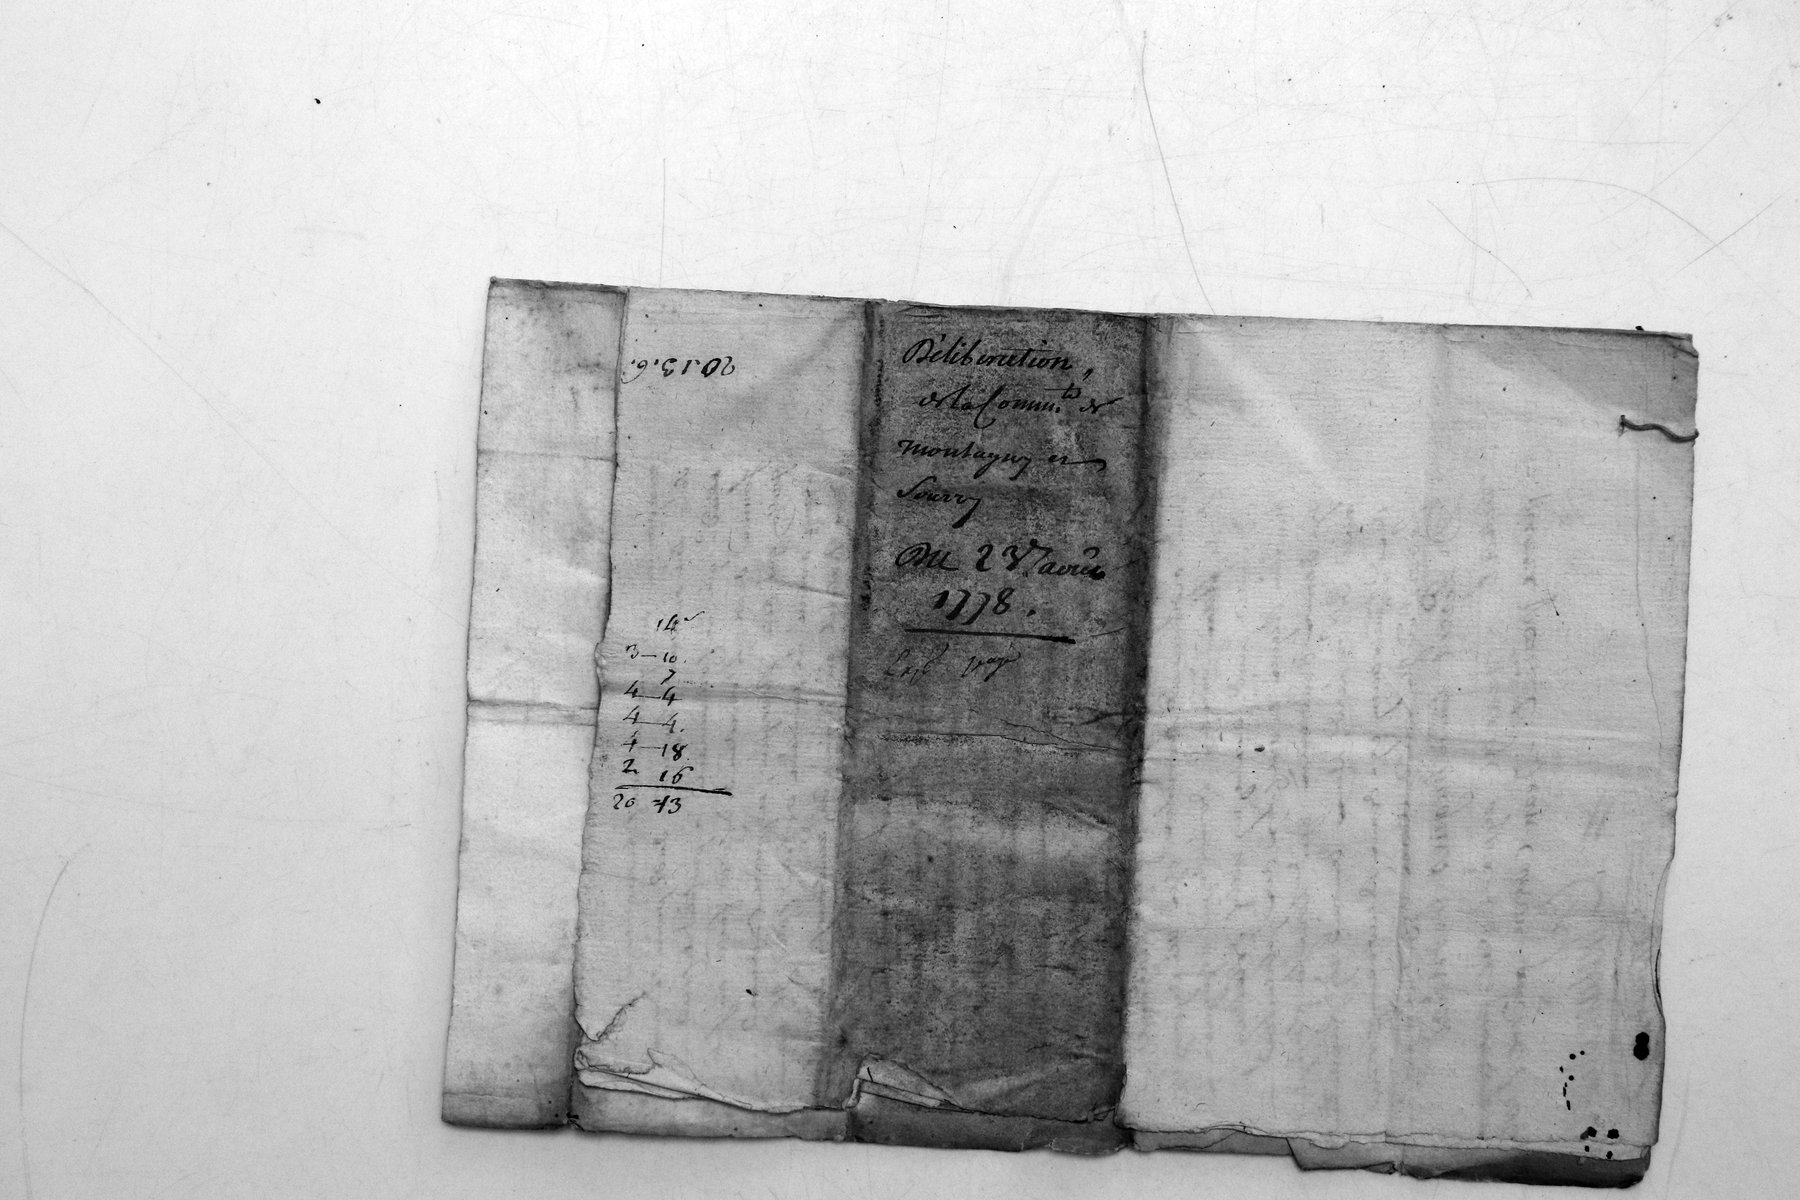 20.13.6.
Déliberation,
de la Comm.té de
montagny en
Lourry
Du 23e. aoûst
1778.
14
3—10.
7
4—4
4—4.
4—18
2 16
20 13